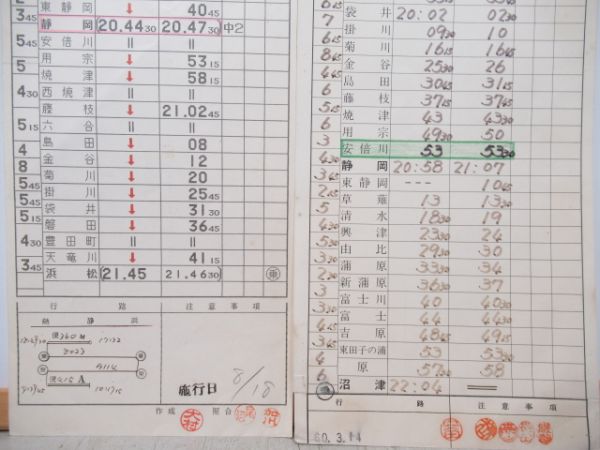 東静岡 ↓ 40 45
3 45 静岡 (20.44 30 20.47 30) 中2
安倍川 || ||
5 用宗 ↓ 53 15
焼津 ↓ 58 15
4 30 西焼津 || ||
藤枝 ↓ 21.02 45
5 15 六合 || ||
島田 ↓ 08
4 金谷 ↓ 12
8 菊川 ↓ 20
5 45 掛川 ↓ 25 45
5 45 袋井 ↓ 31 30
5 15 磐田 ↓ 36 45
4 30 豊田町 || ||
天竜川 ↓ 41 15
3 45 浜松 (21.45 21.46 30) 乗
行路 注意事項
熱 静 浜
施行日 8/18
作成 照合
袋井 20:02 02 30
7 掛川 09 30 10
6 15 菊川 16 15 16 45
8 45 金谷 25 30 26
4 45 島田 30 45 31 15
藤枝 37 15 37 45
5 15 焼津 43 43 30
用宗 49 30 50
3 安倍川 53 53 30
4 30 静岡 20:58 21:07
東静岡 --- 10 45
草薙 13 13 30
5 清水 18 30 19
興津 23 30 24
由比 29 30 30
蒲原 33 30 34
新蒲原 36 30 37
3 富士川 40 40 30
富士 44 44 30
吉原 48 45 49 15
東田子の浦 53 53 30
4 原 57 30 58
6 沼津 22:04 ══
行路 注意事項
60. 3. 14